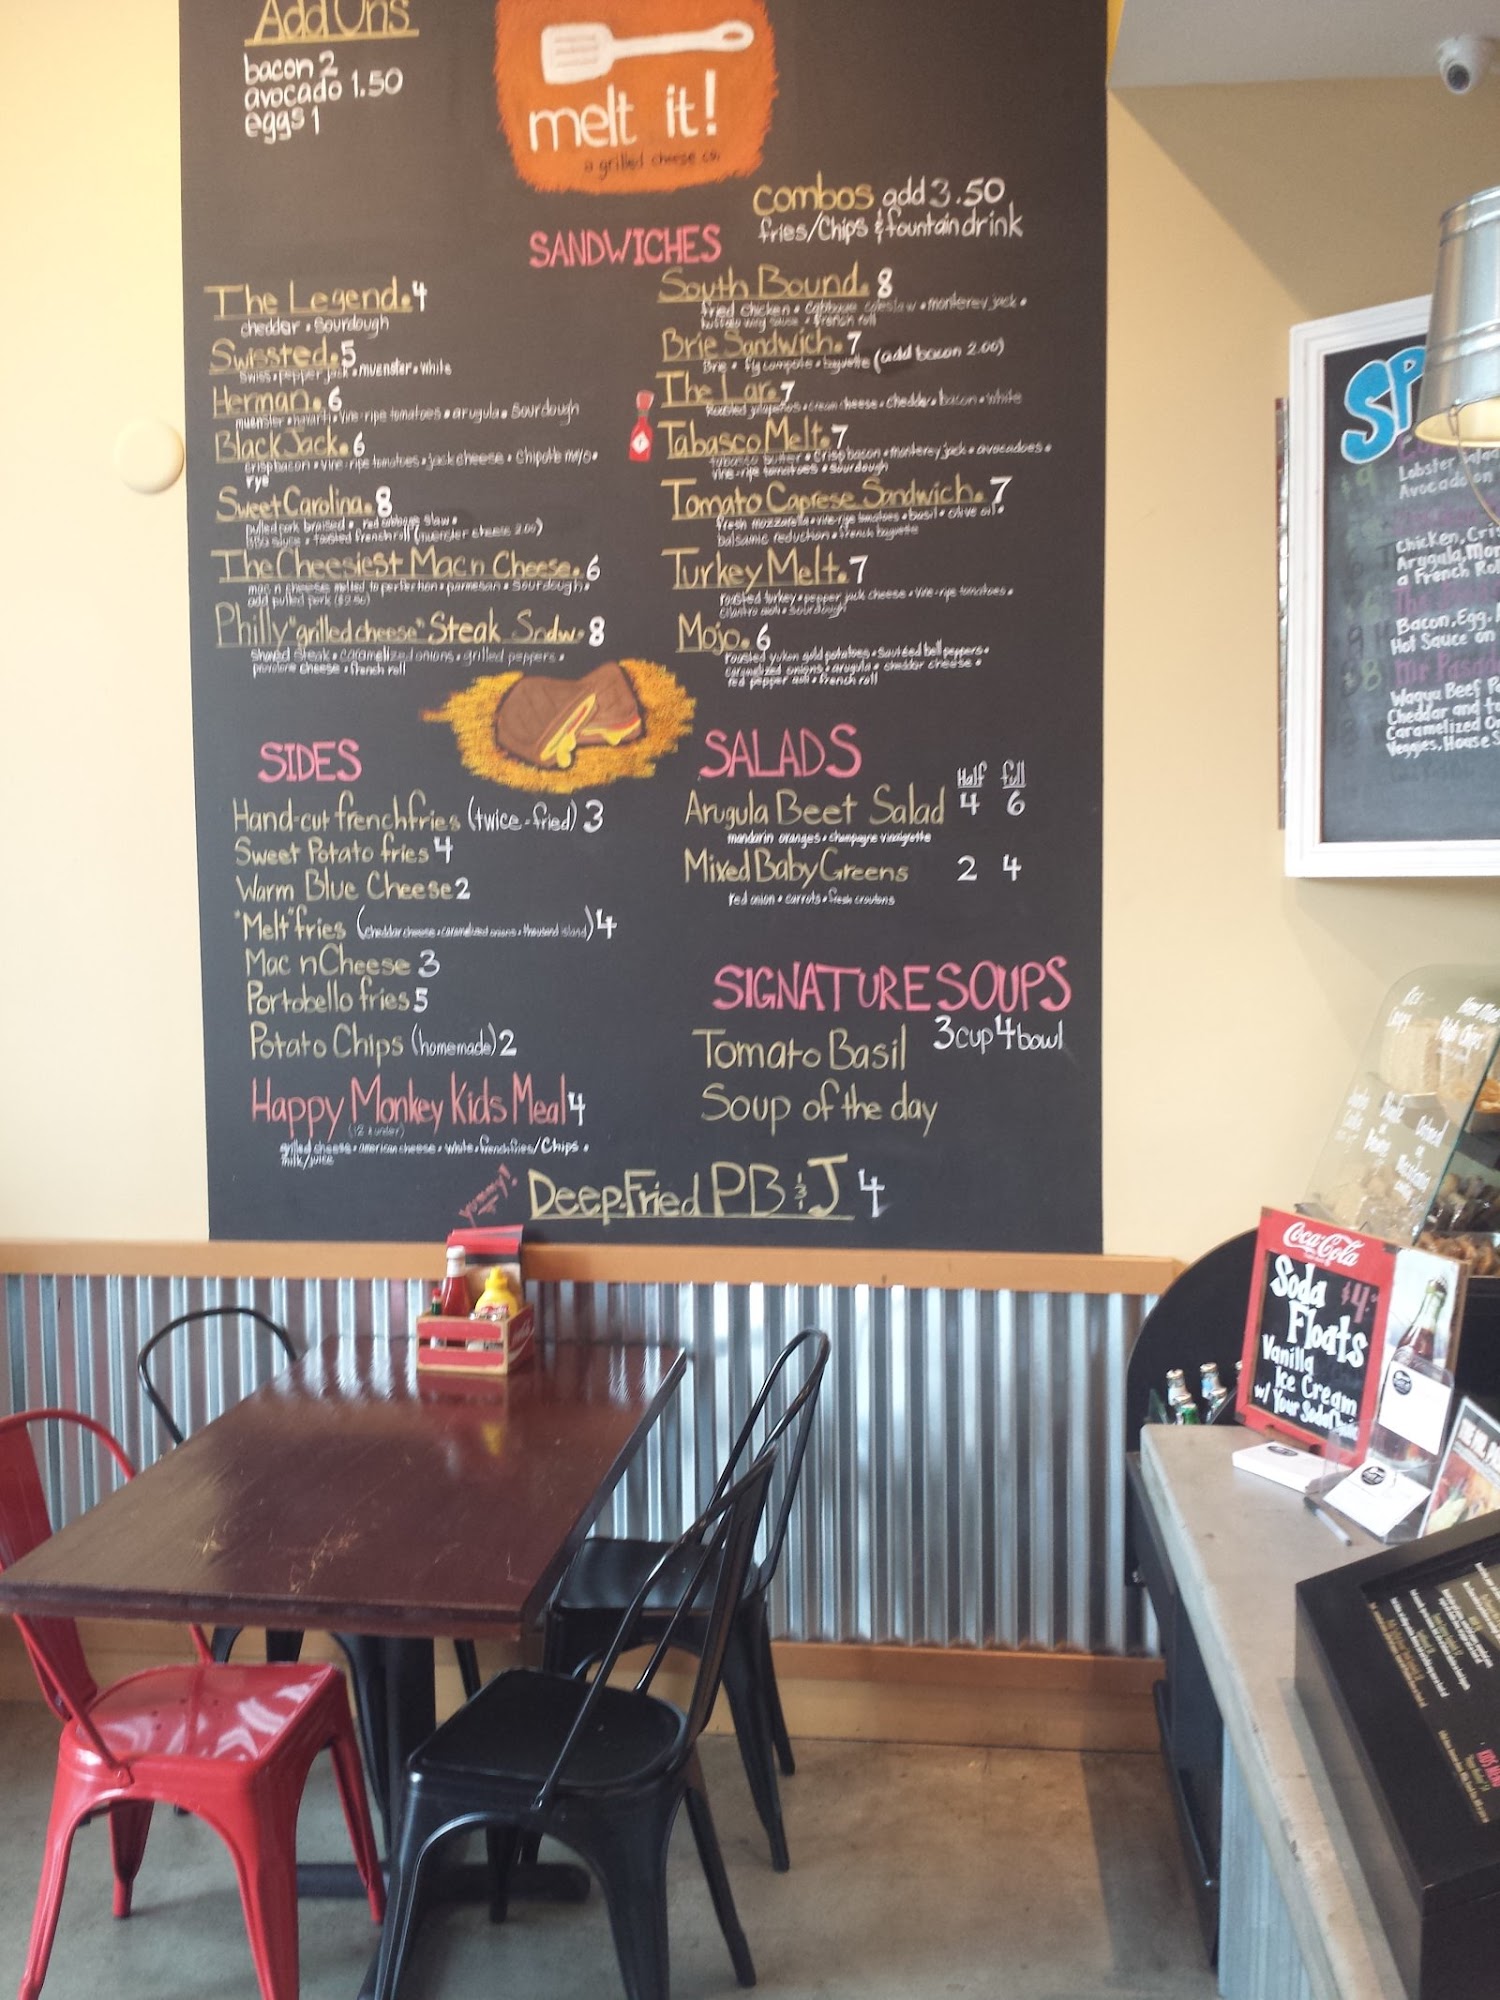 Add Ons
bacon 2
avocado 1.50
eggs 1
melt it!
a grilled cheese co.
combos add 3.50
fries/Chips & fountain drink
SANDWICHES
The Legend. 4
cheddar • sourdough
Swissted. 5
swiss • pepper jack • muenster • white
Herman. 6
muenster • havarti • vine-ripe tomatoes • arugula • sourdough
Black Jack. 6
crisp bacon • vine-ripe tomatoes • jack cheese • chipotle mayo •
rye
Sweet Carolina. 8
pulled pork braised • red cabbage slaw •
BBQ sauce • toasted french roll (muenster cheese 2.00)
The Cheesiest Mac n Cheese. 6
mac n cheese melted to perfection • parmesan • sourdough •
add pulled pork ($2.50)
Philly "grilled cheese" Steak Sndw. 8
shaved steak • caramelized onions • grilled peppers •
provolone cheese • french roll
South Bound. 8
fried chicken • cabbage coleslaw • monterey jack •
buffalo wing sauce • french roll
Brie Sandwich. 7
Brie • fig compote • baguette (add bacon 2.00)
The Lar. 7
Roasted jalapeños • cream cheese • cheddar • bacon • white
Tabasco Melt. 7
tabasco butter • crisp bacon • monterey jack • avocadoes •
vine-ripe tomatoes • sourdough
Tomato Caprese Sandwich. 7
fresh mozzarella • vine-ripe tomatoes • basil • olive oil •
balsamic reduction • french baguette
Turkey Melt. 7
roasted turkey • pepper jack cheese • vine-ripe tomatoes •
cilantro aioli • sourdough
Mojo. 6
roasted yukon gold potatoes • sautéed bell peppers •
caramelized onions • arugula • cheddar cheese •
red pepper aioli • french roll
SIDES
Hand-cut french fries (twice-fried) 3
Sweet Potato fries 4
Warm Blue Cheese 2
"Melt" fries (cheddar cheese • caramelized onions • thousand island) 4
Mac n Cheese 3
Portobello fries 5
Potato Chips (homemade) 2
Happy Monkey Kids Meal 4
(12 & under)
grilled cheese • american cheese • white • french fries/Chips •
milk/juice
SALADS
Half full
Arugula Beet Salad 4 6
mandarin oranges • champagne vinaigrette
Mixed Baby Greens 2 4
red onion • carrots • fresh croutons
SIGNATURE SOUPS
3 cup 4 bowl
Tomato Basil
Soup of the day
yummy!
Deep-Fried PB & J 4
SP
$9
Lobster Salad
Avocado on
Chicken, Cris
Arugula, Mon
a French Rol
Bacon, Egg,
Hot Sauce on
$8 Mr Pasad
Wagyu Beef Pa
Cheddar and to
Caramelized On
Veggies, House S
Coca-Cola
Soda $4.
Floats
Vanilla
Ice Cream
w/ Your Soda
KIDS MENU